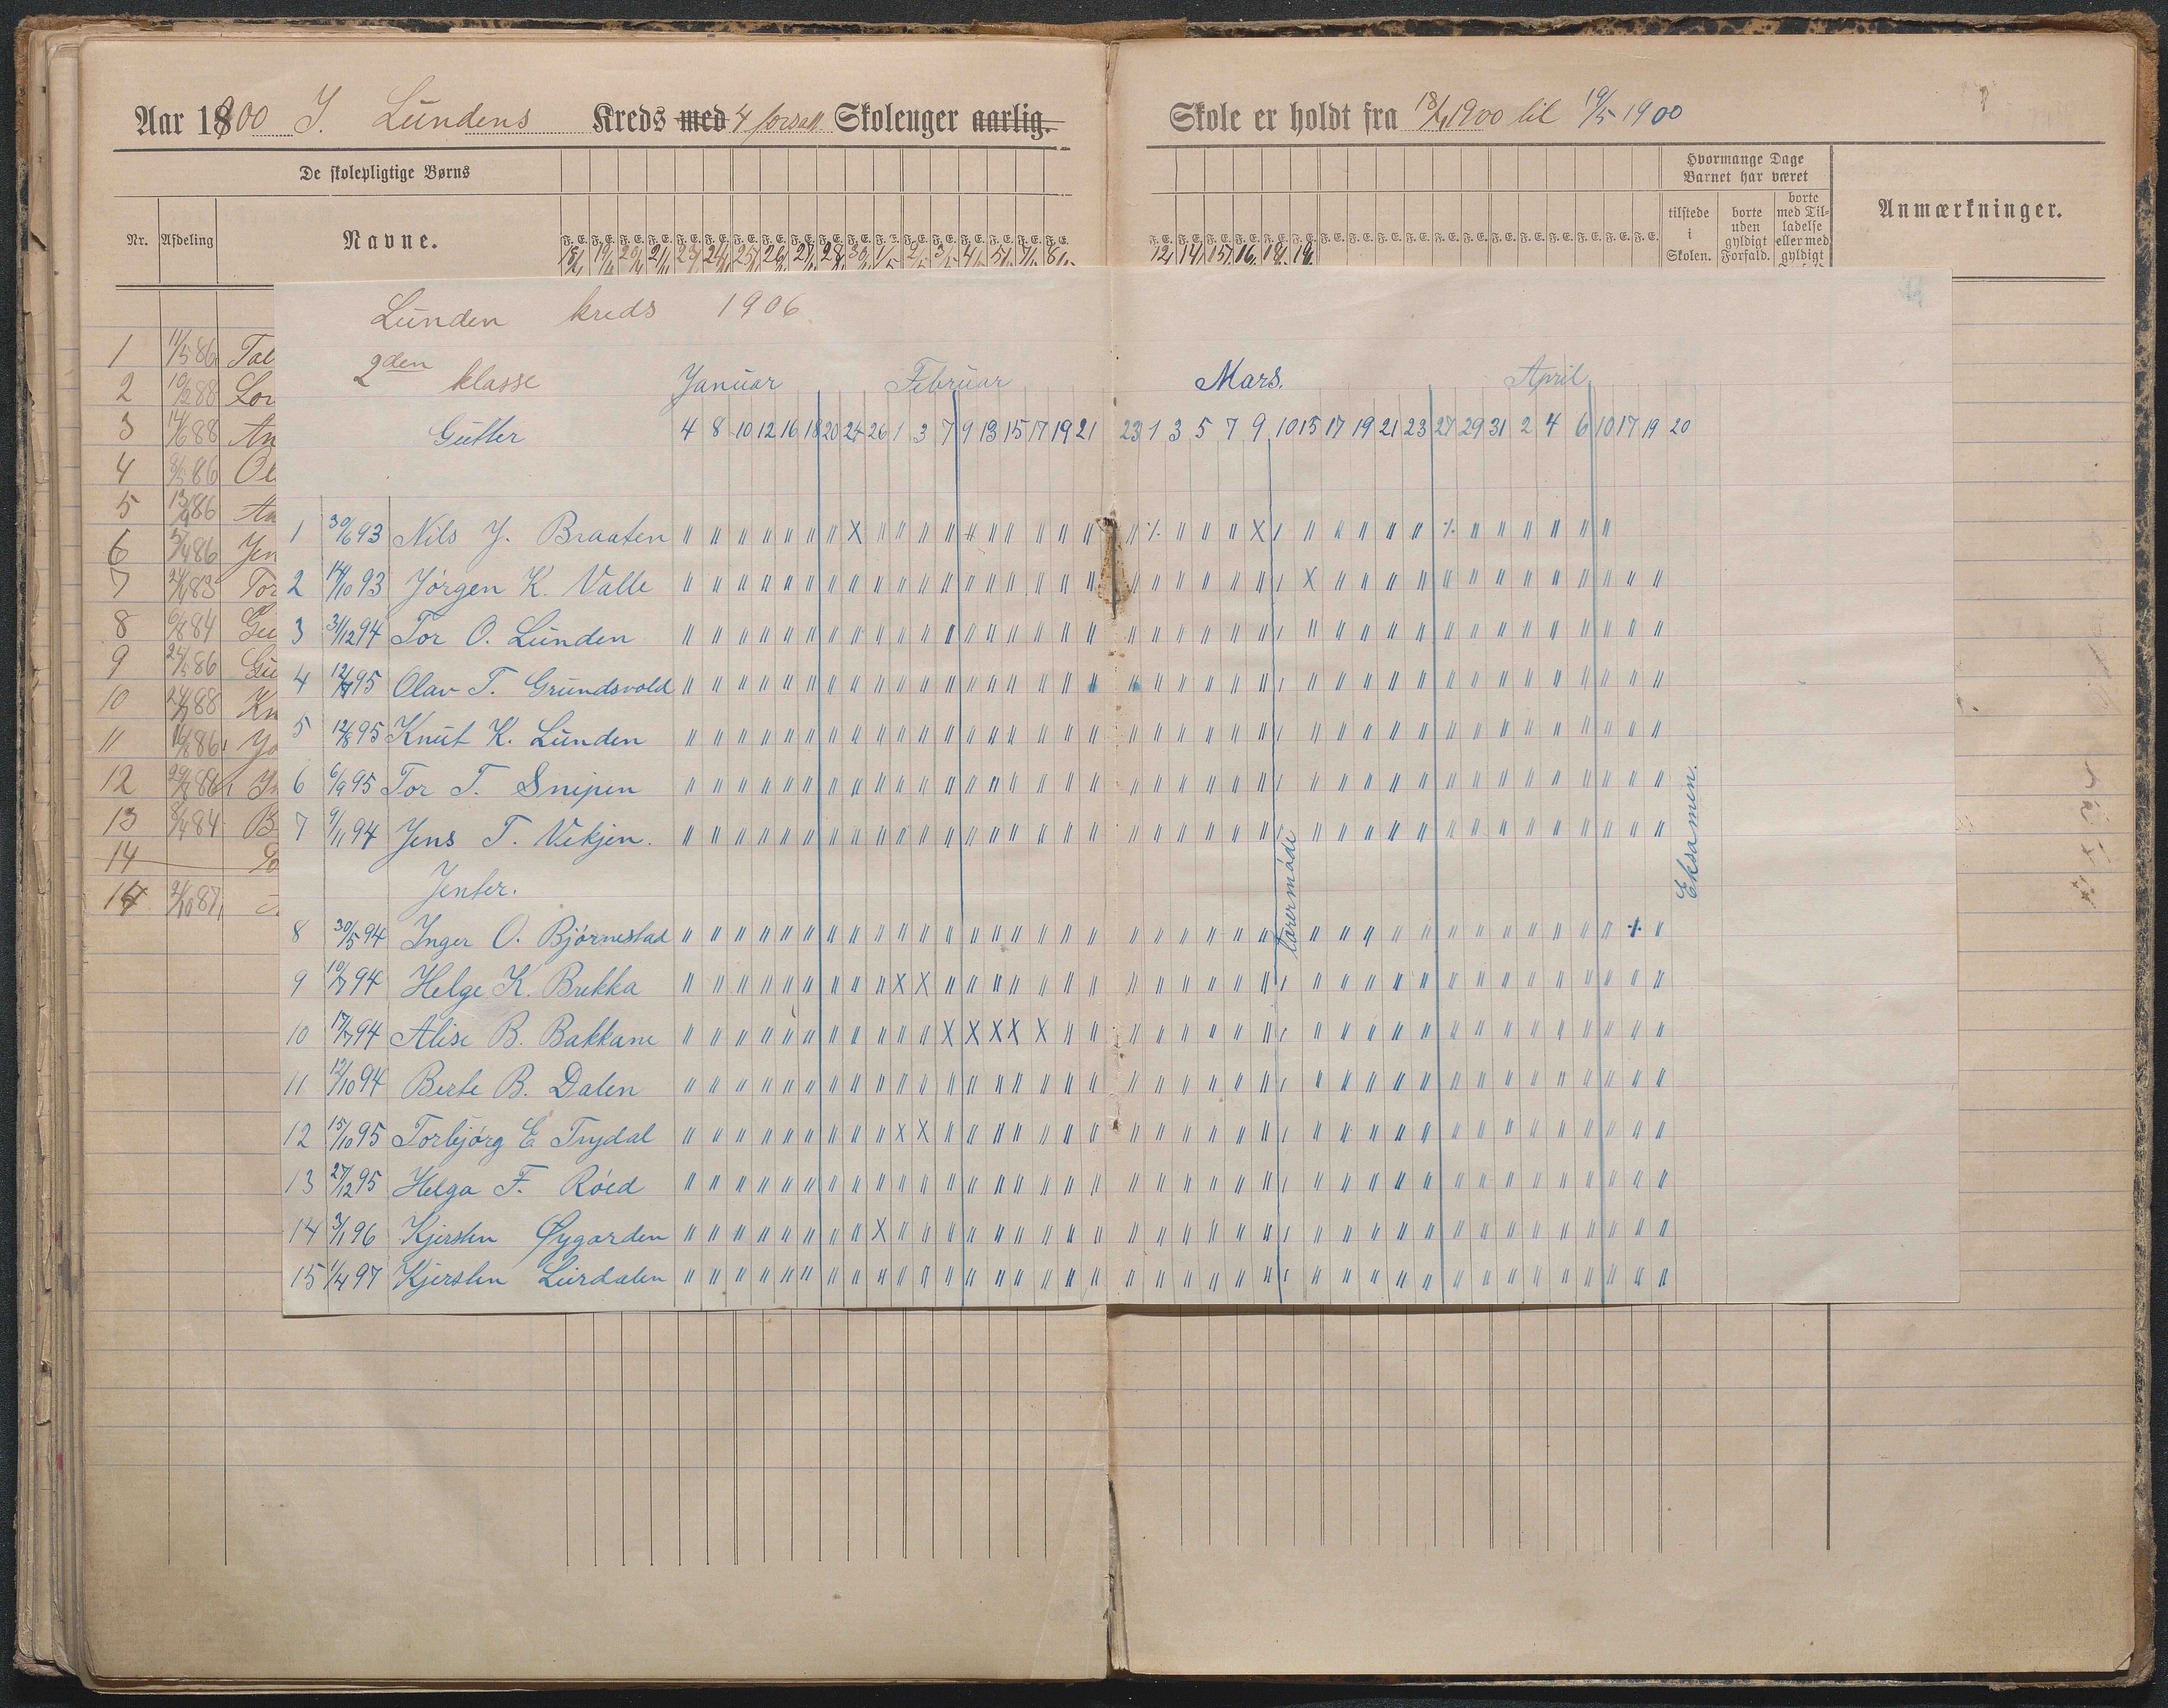 Aar 1900 I. Lundens Kreds med 4 forsatt Skolenger aarlig. Skole er holdt fra 18/4 1900 til 19/5 1900
De skolepligtige Børns
Hvormange Dage Barnet har været
Nr. Afdeling Navne.
tilstede i Skolen. borte uden gyldigt Forfald. borte med Til-ladelse eller med gyldigt
Anmærkninger.
F. E. F. E. F. E. F. E. F. E. F. E. F. E. F. E. F. E. F. E. F. E. F. E. F. E. F. E. F. E. F. E. F. E. F. E.
12 14 15 16 18 19
1 11/5 86 Tal
2 88 Lor
3 14/6 88 An
4 8/5 86 Ol
5 13/9 86 An
6 5/4 86 Jen
7 83 Tor
8 6/8 84 Gu
9 86 Gu
10 88 Kn
11 86 Jo
12 86 In
13 8/4 84 B
14
14 2/10 87
Lunden kreds 1906
2den klasse
Januar Februar Mars. April
Gutter 4 8 10 12 16 18 20 24 26 1 3 7 9 13 15 17 19 21 23 1 3 5 7 9 10 15 17 19 21 23 27 29 31 2 4 6 10 17 19 20
1 30/6 93 Nils J. Braaten
2 14/10 93 Jørgen K. Valle
3 31/12 94 Tor O. Lunden
4 95 Olav T. Grundsvold
5 12/8 95 Knut K. Lunden
6 6/9 95 Tor T. Snipen
7 9/11 94 Jens T. Vikjen.
Jenter.
8 30/5 94 Inger O. Bjørnestad
9 10/7 94 Helge K. Brekka
10 17/7 94 Alise B. Bakkane
11 12/10 94 Berte B. Dalen
12 15/10 95 Torbjørg E Trydal
13 27/12 95 Helga F. Røed
14 3/1 96 Kjersten Øygarden
15 1/4 97 Kjersten Lurdalen
Lærermøde
Eksamen.